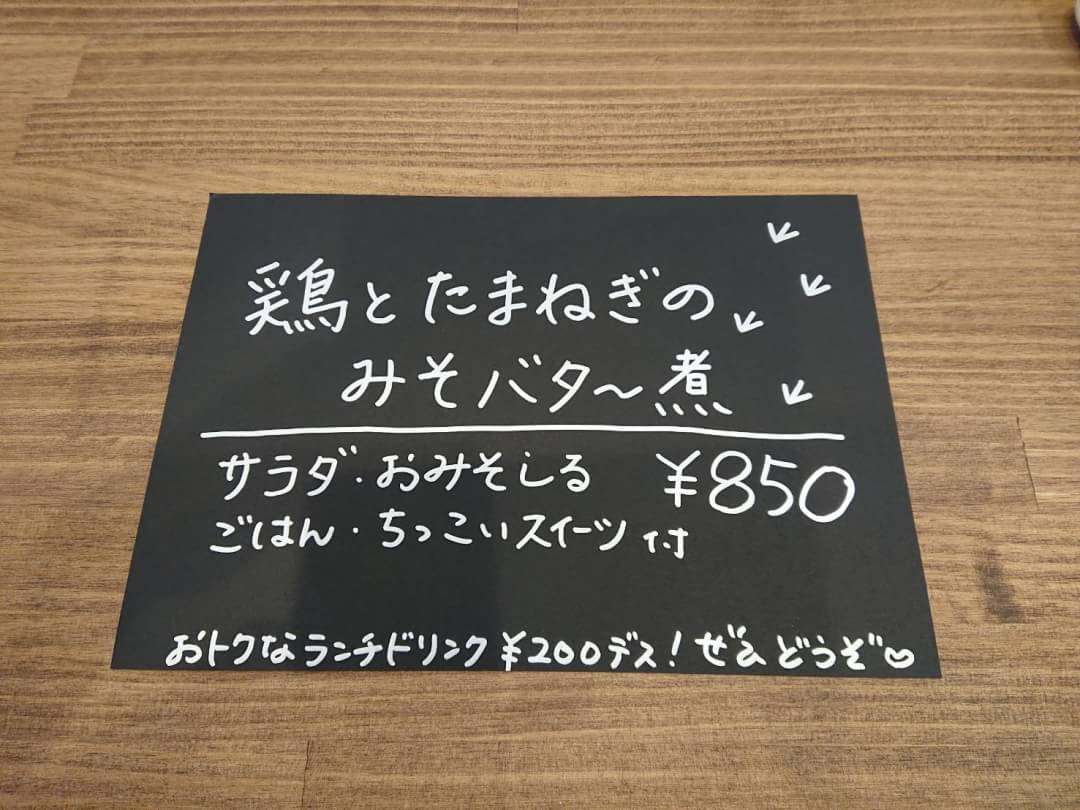 鶏とたまねぎの
みそバタ～煮
サラダ・おみそしる ¥850
ごはん・ちっこいスイーツ 付
おトクなランチドリンク ¥200デス！ぜひどうぞ♡